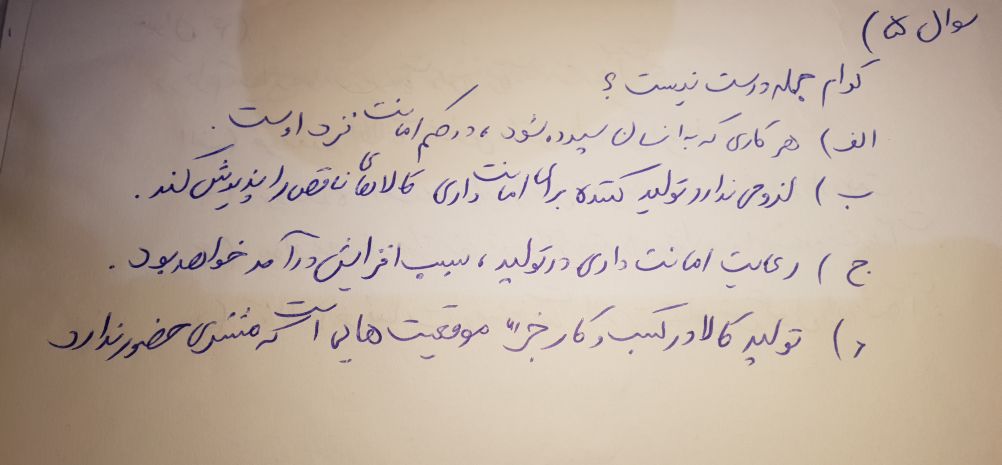 سوال ۵)
کدام جمله درست نیست؟
الف) هر کاری که به انسان سپرده شود، در حکم امانت نزد اوست.
ب) لزومی ندارد تولید کننده برای امانت داری کالاهای ناقص را پذیرش کند.
ج) رعایت امانت داری در تولید، سبب افزایش درآمد خواهد بود.
د) تولید کالا در کسب و کار جزء موقعیت هایی است که مشتری حضور ندارد